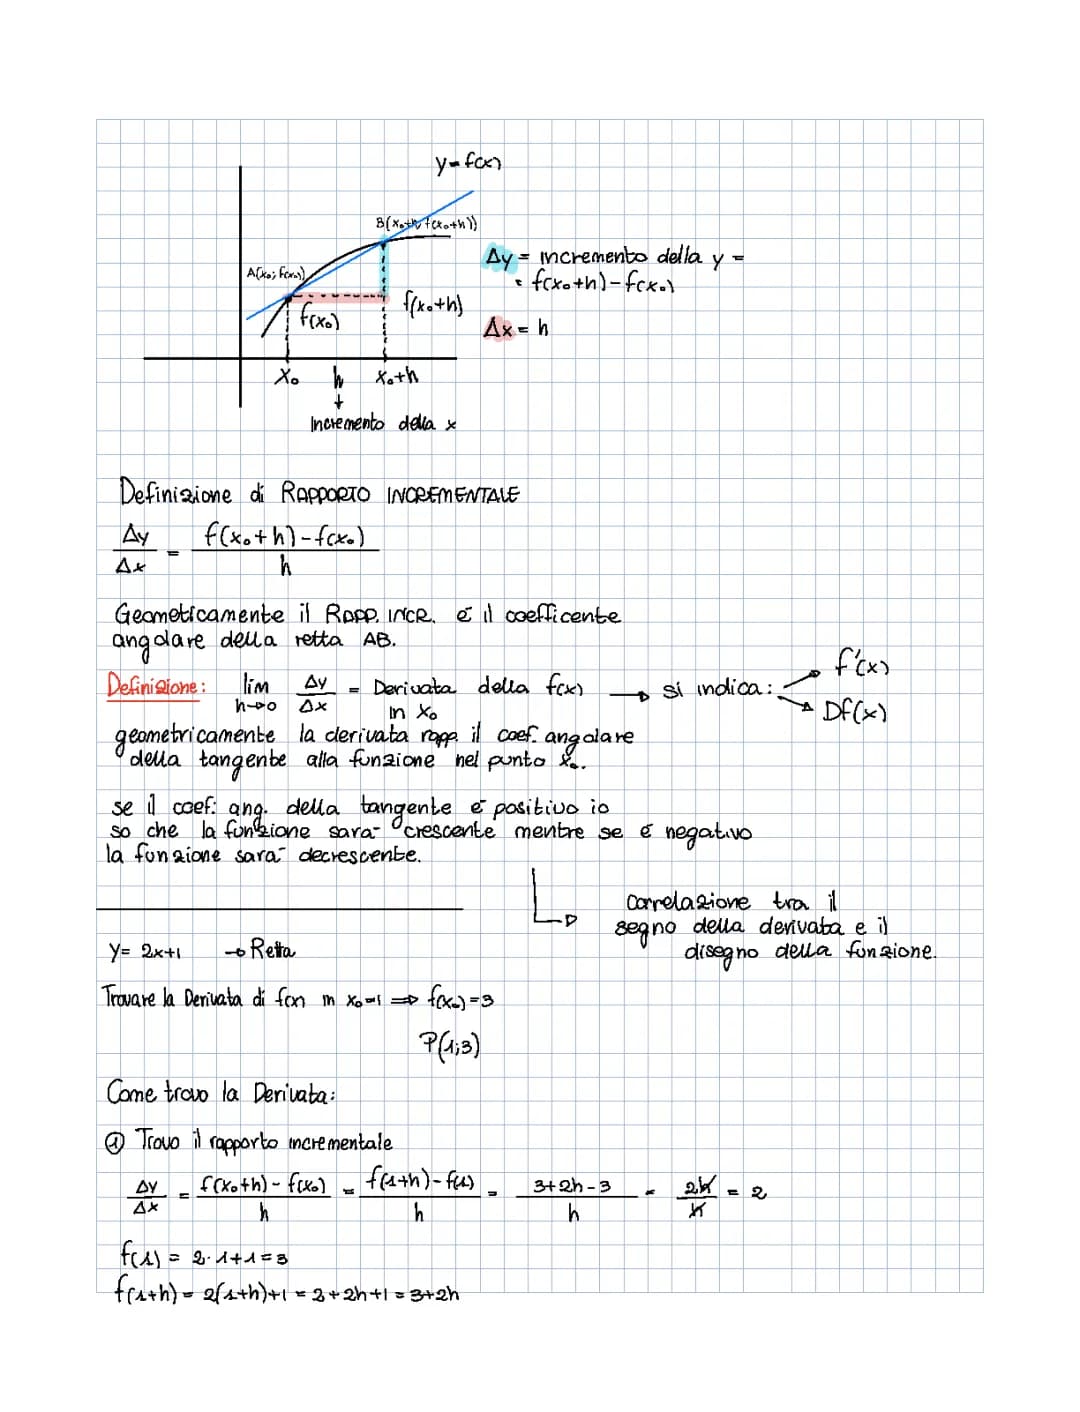 y=f(x)
B(x₀+h; f(x₀+h))
A(x₀; f(x₀))
Δy = incremento della y =
= f(x₀+h)-f(x₀)
f(x₀+h)
f(x₀)
Δx = h
x₀ h x₀+h
Incremento della x
Definizione di RAPPORTO INCREMENTALE
Δy/Δx = (f(x₀+h)-f(x₀))/h
Geometicamente il RAPP. INCR. è il coefficente
angolare della retta AB.
Definizione: lim h→0 Δy/Δx = Derivata della f(x) in x₀ → si indica: f'(x)
Df(x)
geometricamente la derivata rapp. il coef. angolare
della tangente alla funzione nel punto x₀.
se il coef. ang. della tangente è positivo io
so che la funzione sarà crescente mentre se è negativo
la funzione sarà decrescente.
correlazione tra il
segno della derivata e il
disegno della funzione.
y= 2x+1 → Retta
Trovare la Derivata di f(x) in x₀=1 ⇒ f(x₀)=3
P(1;3)
Come trovo la Derivata:
① Trovo il rapporto incrementale
Δy/Δx = (f(x₀+h)-f(x₀))/h = (f(1+h)-f(1))/h = (3+2h-3)/h = 2h/h = 2
f(1) = 2·1+1=3
f(1+h) = 2(1+h)+1 = 2+2h+1 = 3+2h